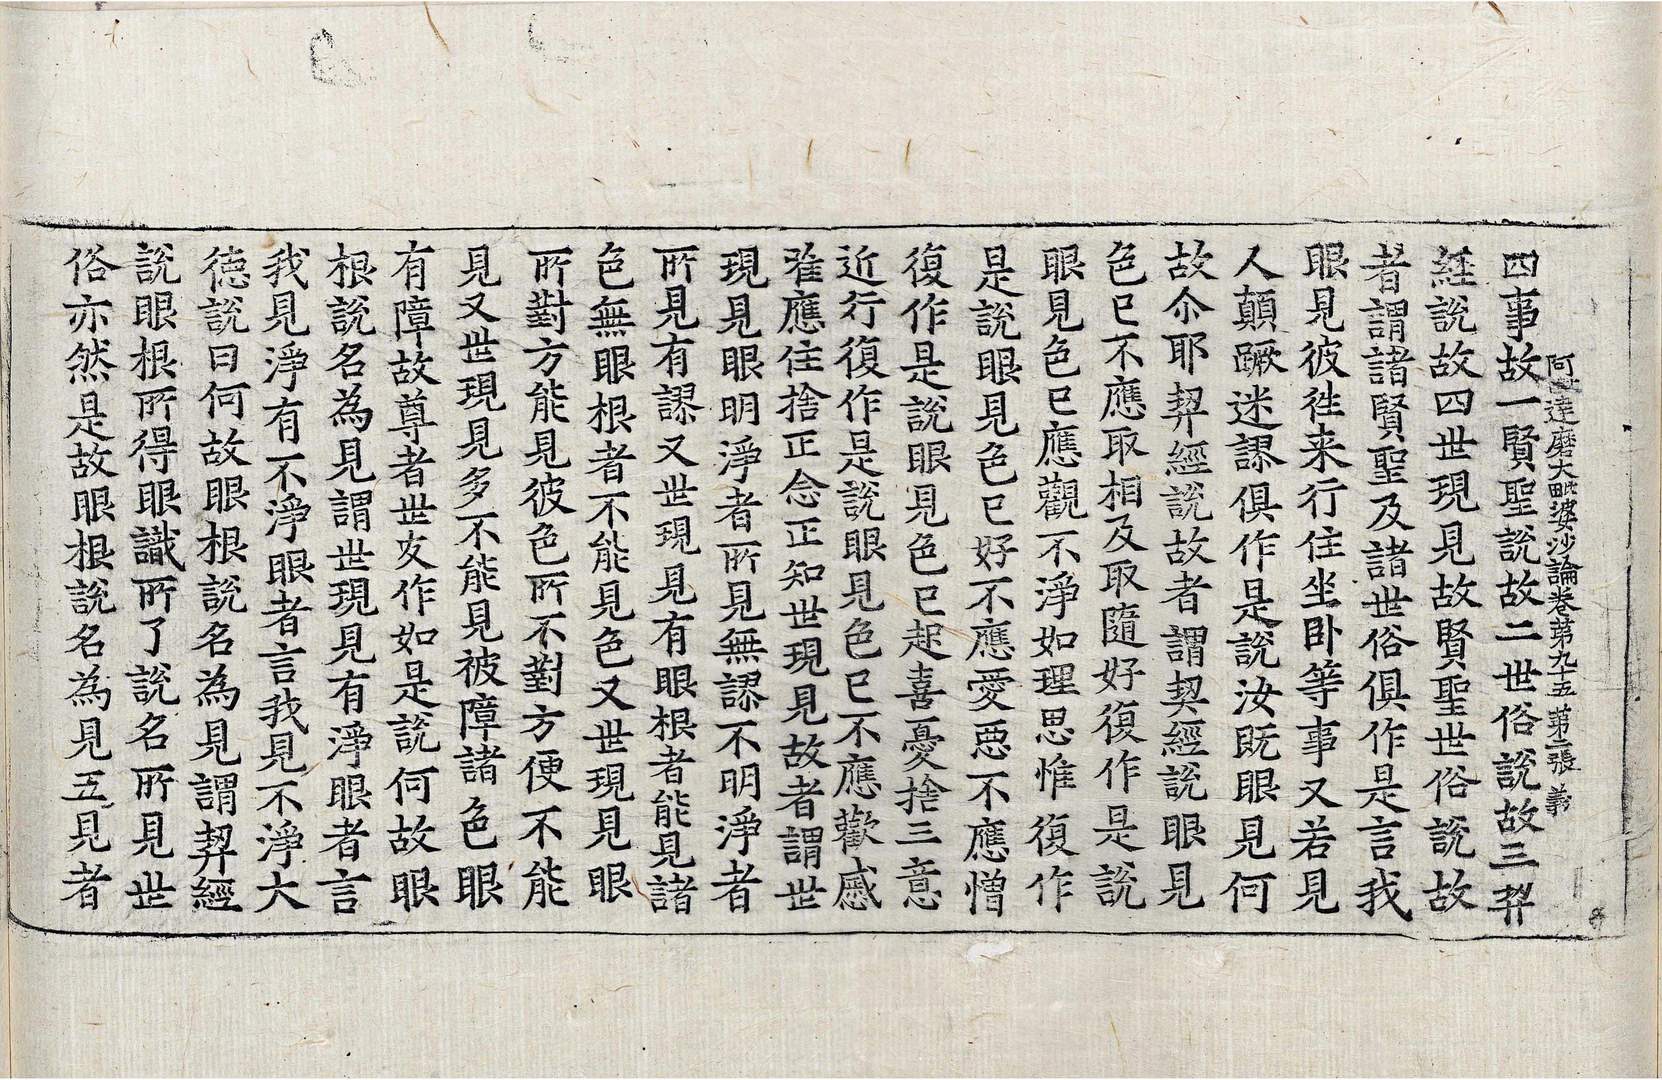 阿毗達磨大毗婆沙論卷第九十五 第二張 義
四事故一賢聖說故二世俗說故三契
經說故四世現見故賢聖世俗說故
者謂諸賢聖及諸世俗俱作是言我
眼見彼徃来行住坐卧等事又若見
人顛蹶迷謬俱作是說汝既眼見何
故尒耶契經說故者謂契經說眼見
色已不應取相及取隨好復作是說
眼見色已應觀不淨如理思惟復作
是說眼見色已好不應愛惡不應憎
復作是說眼見色已起喜憂捨三意
近行復作是說眼見色已不應歡慼
唯應住捨正念正知世現見故者謂世
現見眼明淨者所見無謬不明淨者
所見有謬又世現見有眼根者能見諸
色無眼根者不能見色又世現見眼
所對方能見彼色所不對方便不能
見又世現見多不能見被障諸色眼
有障故尊者世友作如是說何故眼
根說名為見謂世現見有淨眼者言
我見淨有不淨眼者言我見不淨大
德說曰何故眼根說名為見謂契經
說眼根所得眼識所了說名所見世
俗亦然是故眼根說名為見五見者